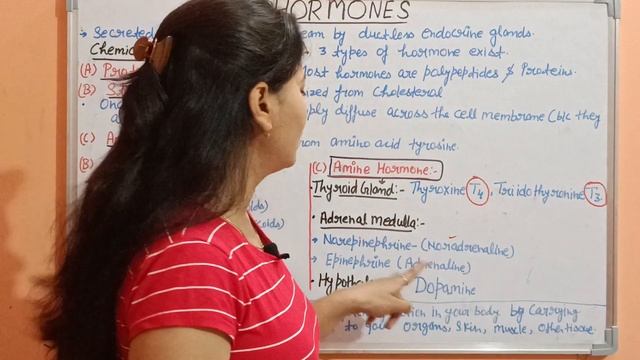 HORMONES
Secreted eam by ductless endocrine glands.
Chemic 3 types of hormone exist.
(A) Prot ost hormones are polypeptides & Proteins.
(B) S ized from Cholesteral
ply diffuse across the cell membrane (b/c they
(C) A rom amino acid tyrosine.
(B)
(C) Amine Hormone:-
Thyroid Gland:- Thyroxine T4, Triiodothyronine T3
Adrenal Medulla:-
Norepinephrine- (Noradrenaline)
oids)
coids)
Epinephrine (Adrenaline)
Hypothal Dopamine
in your body by carrying
to your organs, skin, muscle, other tissue